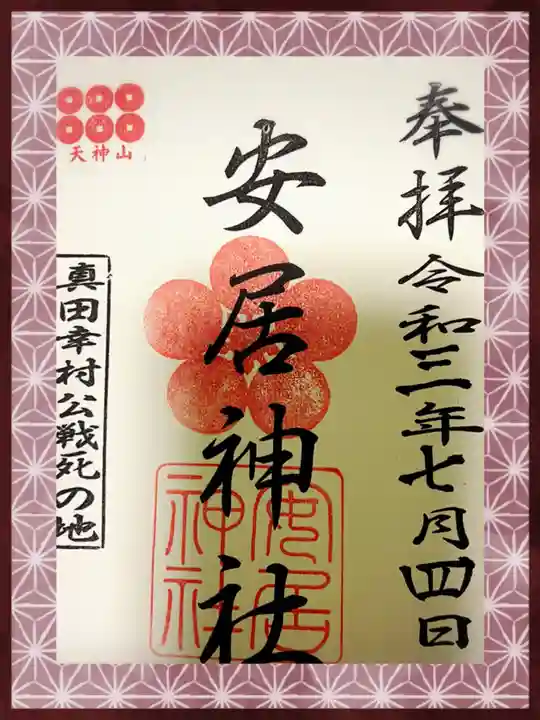 奉拝令和三年七月四日
安居神社
安居
神社
天神山
真田幸村公戦死の地